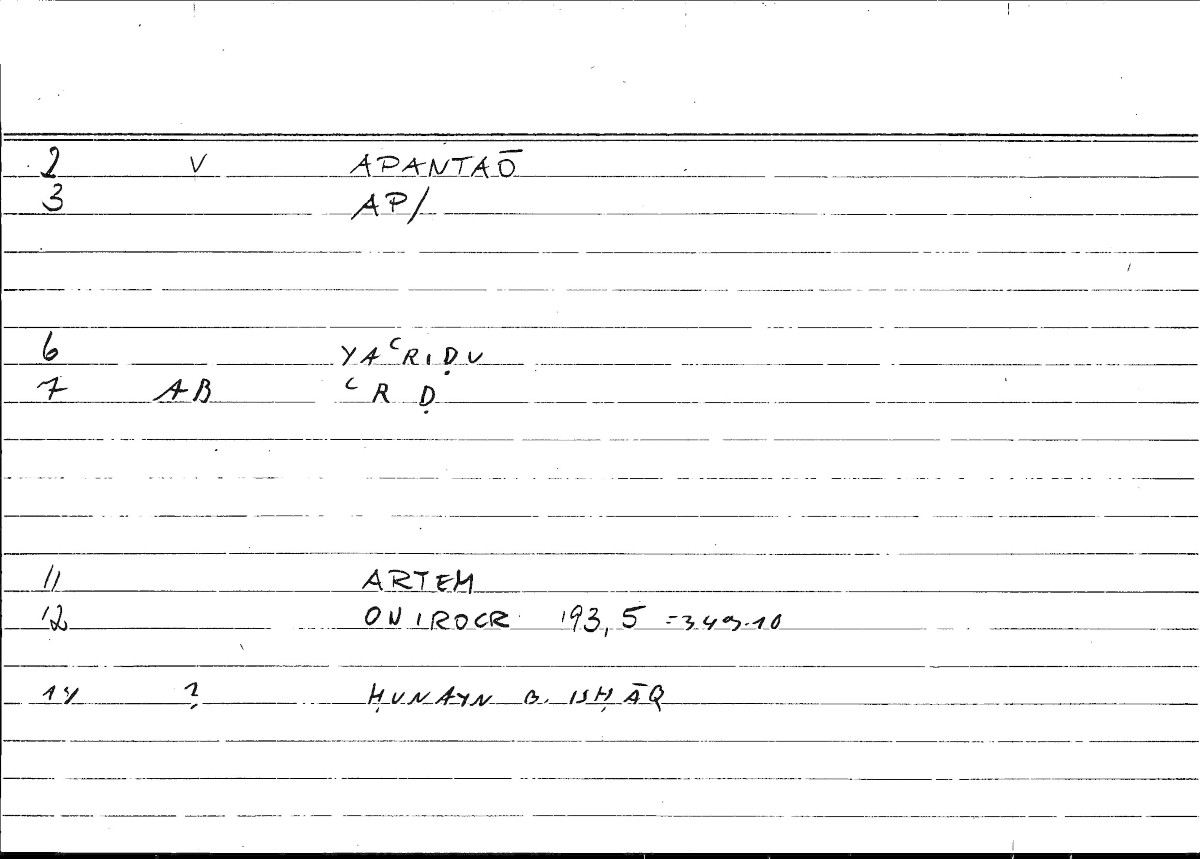 2 V APANTAŌ
3 AP/
6 YAʿRIḌU
7 AB ʿR Ḍ
11 ARTEM
12 ONIROCR 193,5 =349.10
14 ? ḤUNAYN B. ISḤĀQ